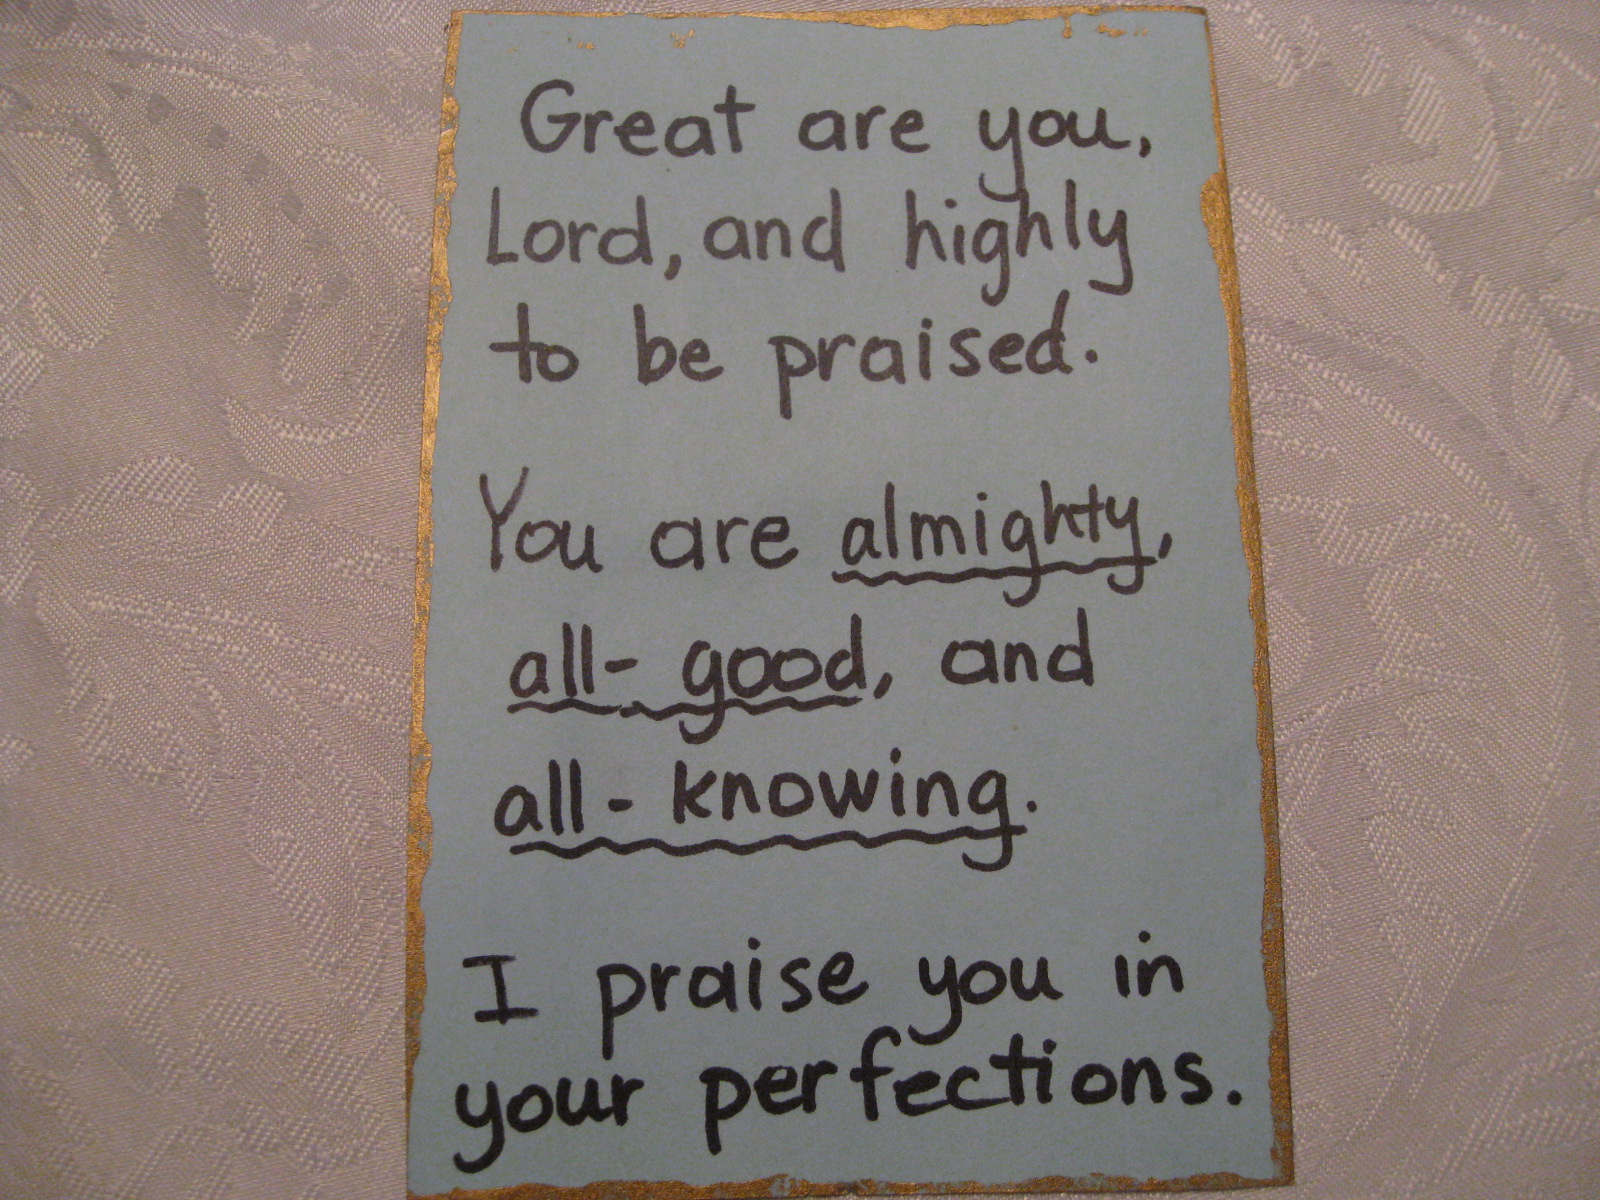 Great are you,
Lord, and highly
to be praised.
You are almighty,
all- good, and
all- knowing.
I praise you in
your perfections.